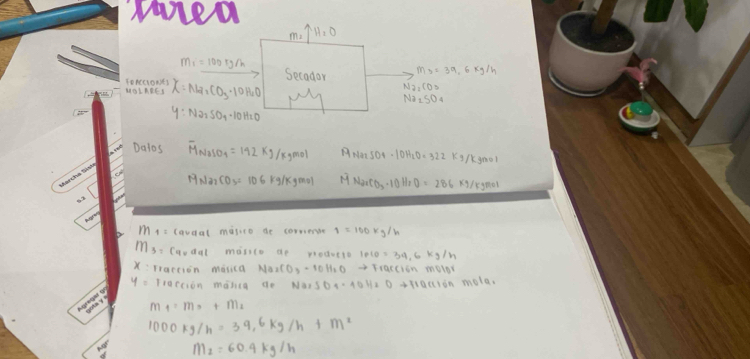 Tarea
m₂ ↑ H₂O
m₁ = 100 kg/h
Secador
m₃ = 39,6 kg/h
Na₂CO₃
Na₂SO₄
FRACCIONES MOLARES
X: Na₂CO₃·10H₂O
Y: Na₂SO₄·10H₂O
Datos
M̄ Na₂SO₄ = 142 Kg/Kgmol
M̄ Na₂SO4·10H₂O = 322 Kg/Kgmol
M̄ Na₂CO₃ = 106 Kg/Kgmol
M̄ Na₂CO₃·10H₂O = 286 Kg/Kgmol
m1 = Caudal másico de corriente 1 = 100 kg/h
m3 = Caudal másico de producto = 39,6 Kg/h
X = Fracción másica Na₂CO₃·10H₂O → Fracción molar
Y = Fracción másica de Na₂SO₄·10H₂O → Fracción mola.
m1 = m3 + m2
1000 kg/h = 39,6 kg/h + m²
m₂ = 60.4 kg/h
Marcha Siste
5.2
Agreg
Agregar
gota y
Agr